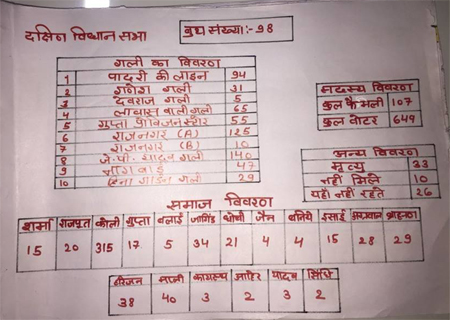 दक्षिण विधान सभा
बुथ संख्या:-98
गली का विवरण
1 पादरी की लाइन 94
2 गणेश गली 31
3 देवराज गली 5
4 गली 65
5 गुप्ता 55
6 राजनगर (A) 125
7 राजनगर (B) 10
8 जे.पी. यादव गली 140
9 47
10 गली 29
सदस्य विवरण
कुल फैमली 107
कुल वोटर 649
अन्य विवरण
मृत्यु 33
नही मिले 10
यहाँ नही रहते 26
समाज विवरण
शर्मा राजपूत कोली गुप्ता बलाई जांगिड़ धोबी जैन बनिये इसाई अग्रवाल ब्राहमण
15 20 315 17 5 34 21 4 4 15 28 29
हरिजन माली कायस्थ अहिर यादव सिंधि
38 40 3 2 3 2